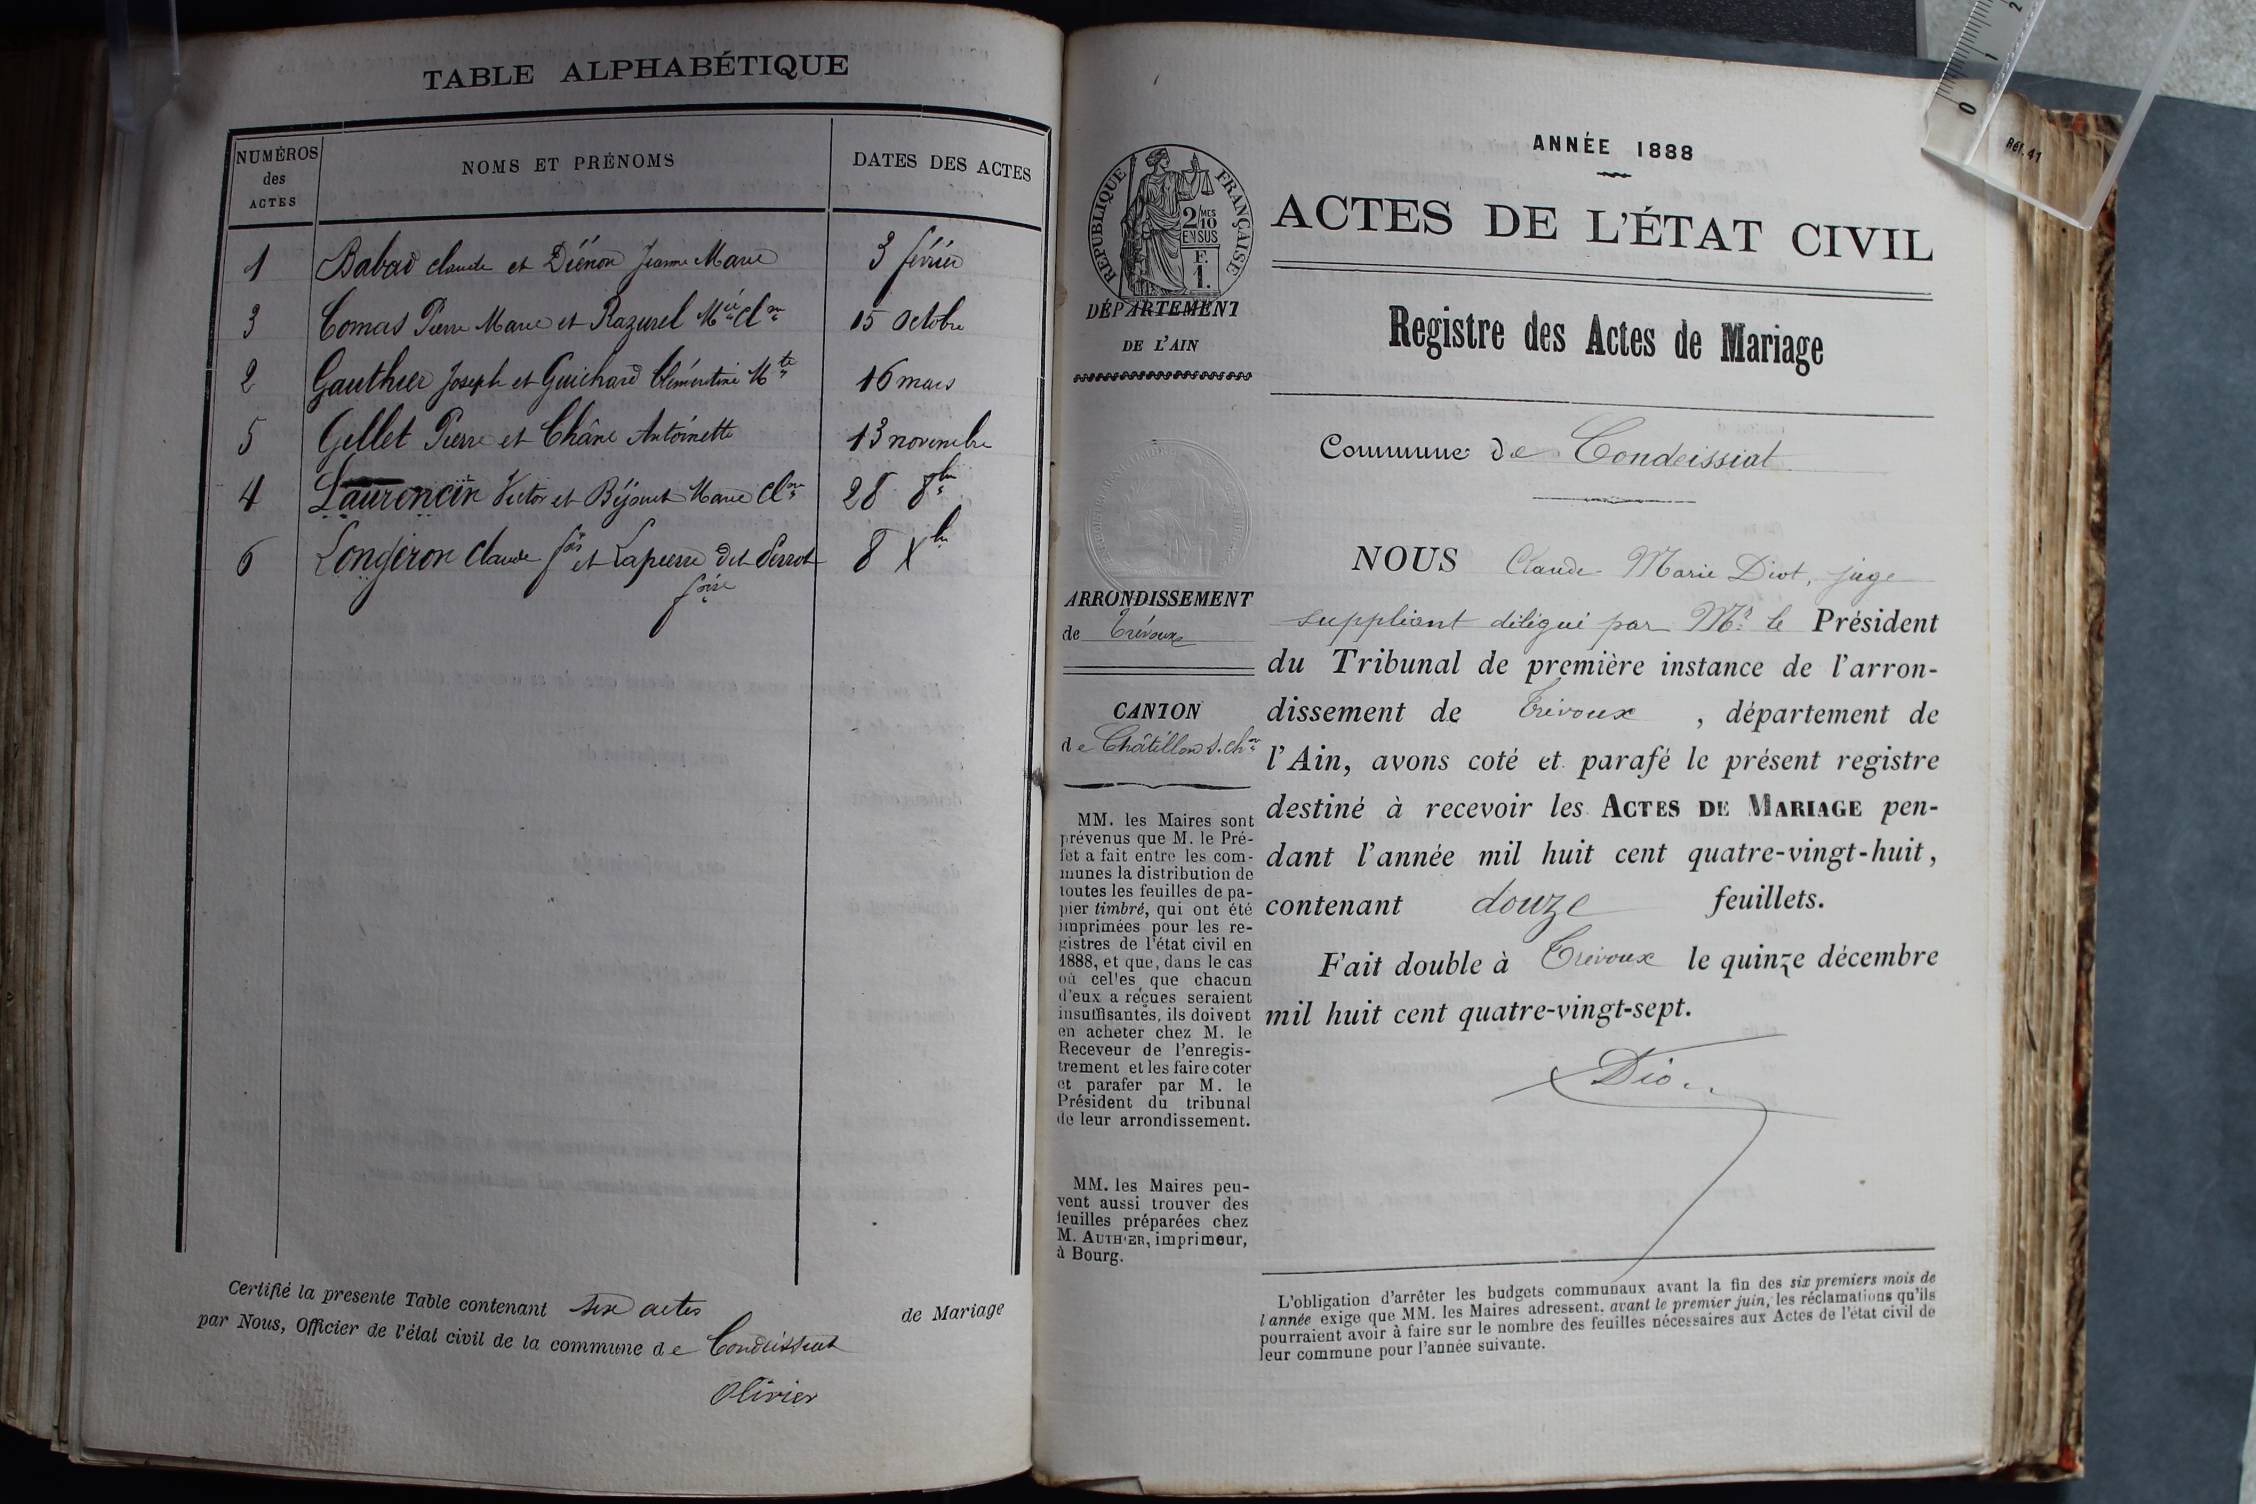 TABLE ALPHABÉTIQUE
NUMÉROS
des
ACTES
NOMS ET PRÉNOMS
DATES DES ACTES
1 Babad claude et Diénon Jeanne Marie 3 février
3 Comas Pierre Marie et Razurel Mie Clne 15 octobre
2 Gauthier Joseph et Guichard Clémentine Mte 16 mars
5 Gellet Pierre et Châne Antoinette 13 novembre
4 Laurencin Victor et Béjouet Marie Clne 28 8bre
6 Longeron Claude fois et Lapierre dit Perrot 8 Xbre
foise
Certifié la presente Table contenant six actes de Mariage
par Nous, Officier de l'état civil de la commune de Condeissiat
Olivier
RÉPUBLIQUE FRANÇAISE
2/10 MES
EN SUS
F.
1.
DÉPARTEMENT
DE L'AIN
ARRONDISSEMENT
de Trévoux
CANTON
de Châtillon s. Chne
MM. les Maires sont
prévenus que M. le Pré-
fet a fait entre les com-
munes la distribution de
toutes les feuilles de pa-
pier timbré, qui ont été
imprimées pour les re-
gistres de l'état civil en
1888, et que, dans le cas
où celles que chacun
d'eux a reçues seraient
insuffisantes, ils doivent
en acheter chez M. le
Receveur de l'enregis-
trement et les faire coter
et parafer par M. le
Président du tribunal
de leur arrondissement.
MM. les Maires peu-
vent aussi trouver des
feuilles préparées chez
M. AUTHIER, imprimeur,
à Bourg.
ANNÉE 1888
ACTES DE L'ÉTAT CIVIL
Registre des Actes de Mariage
Commune de Condeissiat
NOUS Claude Marie Diot, juge
suppléant délégué par Mr le Président
du Tribunal de première instance de l'arron-
dissement de Trévoux , département de
l'Ain, avons coté et parafé le présent registre
destiné à recevoir les ACTES DE MARIAGE pen-
dant l'année mil huit cent quatre-vingt-huit,
contenant douze feuillets.
Fait double à Trévoux le quinze décembre
mil huit cent quatre-vingt-sept.
Dio
L'obligation d'arrêter les budgets communaux avant la fin des six premiers mois de
l'année exige que MM. les Maires adressent, avant le premier juin, les réclamations qu'ils
pourraient avoir à faire sur le nombre des feuilles nécessaires aux Actes de l'état civil de
leur commune pour l'année suivante.
0 1 2
Réf. 41